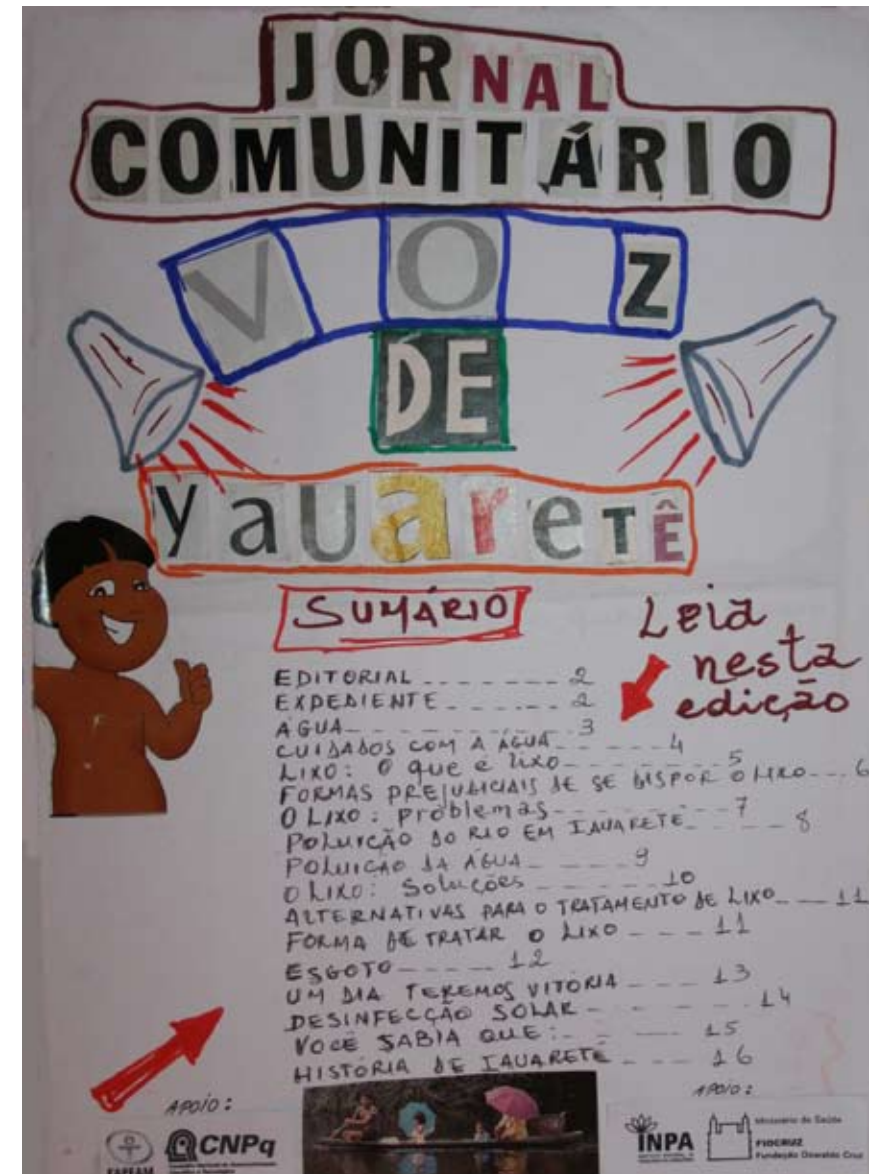 JORNAL
COMUNITÁRIO
VOZ
DE
YaUareTÊ
SUMÁRIO
Leia
nesta
edição
EDITORIAL _ _ _ _ _ _ _ 2
EXPEDIENTE _ _ _ _ _ _ 2
ÁGUA _ _ _ _ _ _ _ _ 3
CUIDADOS COM A ÁGUA _ _ _ _ 4
LIXO: O que é lixo _ _ _ _ _ _ 5
FORMAS PREJUDICIAIS DE SE DISPOR O LIXO _ _ _ 6
O LIXO: problemas _ _ _ _ _ _ 7
POLUIÇÃO DO RIO EM IAUARETÊ _ _ _ _ 8
POLUIÇÃO DA ÁGUA _ _ _ _ 9
O LIXO: Soluções _ _ _ _ _ 10
ALTERNATIVAS PARA O TRATAMENTO DE LIXO _ _ _ 11
FORMA DE TRATAR O LIXO _ _ _ 11
ESGOTO _ _ _ _ 12
UM DIA TEREMOS VITÓRIA _ _ _ 13
DESINFECÇÃO SOLAR _ _ _ _ _ 14
VOCÊ SABIA QUE: _ _ _ _ 15
HISTÓRIA DE IAUARETÊ _ _ _ 16
APOIO:
APOIO:
FAPEAM
CNPq
INPA
Ministério da Saúde
FIOCRUZ
Fundação Oswaldo Cruz